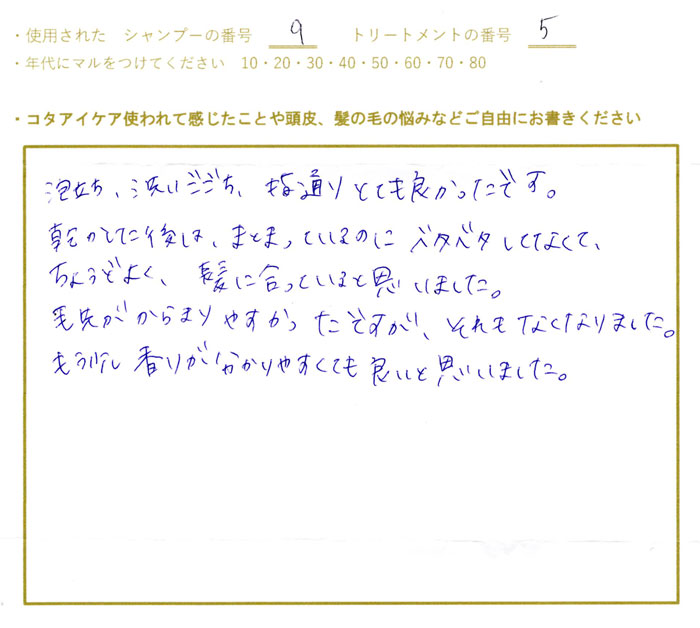 ・使用された シャンプーの番号 9 トリートメントの番号 5
・年代にマルをつけてください 10・20・30・40・50・60・70・80
・コタアイケア使われて感じたことや頭皮、髪の毛の悩みなどご自由にお書きください
泡立ち、洗いごごち、指通りとても良かったです。
乾かした後は、まとまっているのにベタベタしてなくて、
ちょうどよく、髪に合っていると思いました。
毛先がからまりやすかったですが、それもなくなりました。
もう少し香りが分かりやすくても良いと思いました。